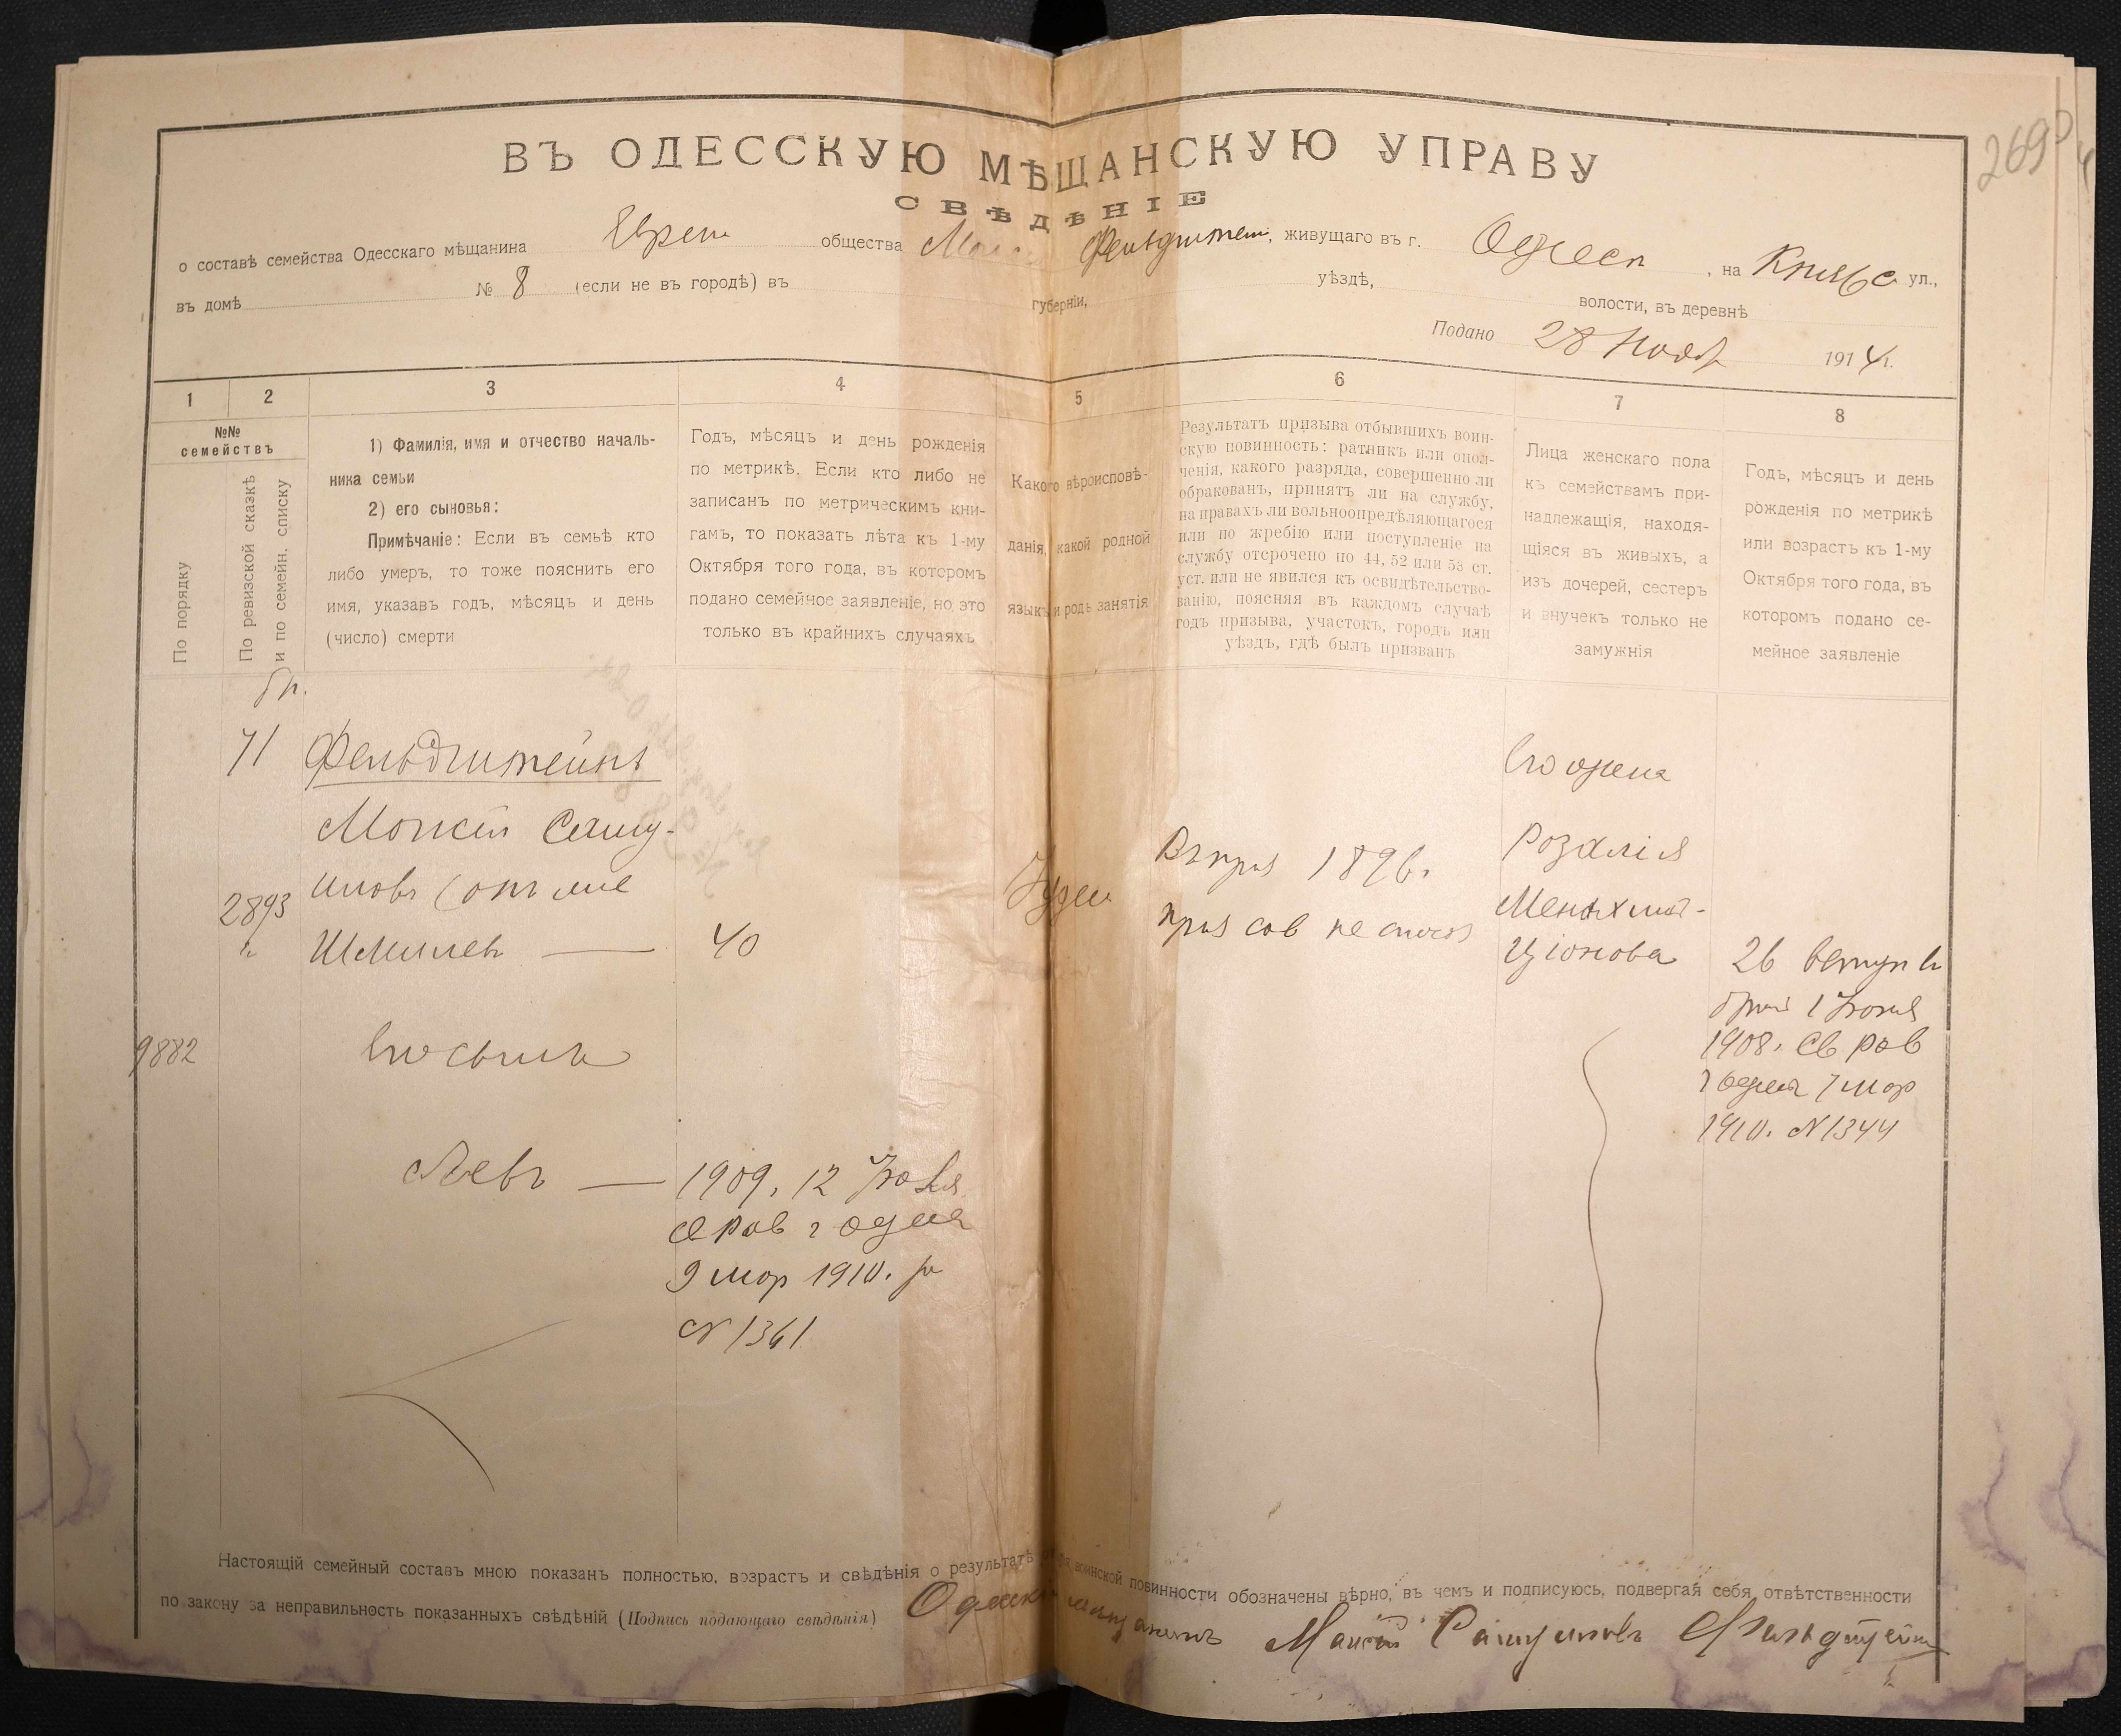 269
ВЪ ОДЕССКУЮ МѢЩАНСКУЮ УПРАВУ
СВѢДѢНІЕ
о составѣ семейства Одесскаго мѣщанина Еврей общества Фельдштейн, живущаго въ г. Одесса, на ул.,
въ домѣ № 8 (если не въ городѣ) въ губерніи, уѣздѣ, волости, въ деревнѣ
Подано 28 Нояб 1914 г.
1 2 3 4 5 6 7 8
№№
семействъ
По порядку
По ревизской сказкѣ
и по семейн. списку
1) Фамилія, имя и отчество началь-
ника семьи
2) его сыновья:
Примѣчаніе: Если въ семьѣ кто
либо умеръ, то тоже пояснить его
имя, указавъ годъ, мѣсяцъ и день
(число) смерти
Годъ, мѣсяцъ и день рожденія
по метрикѣ. Если кто либо не
записанъ по метрическимъ кни-
гамъ, то показать лѣта къ 1-му
Октября того года, въ которомъ
подано семейное заявленіе, но это
только въ крайнихъ случаяхъ
Какого вѣроисповѣ-
данія, какой родной
языкъ и родъ занятія
Результатъ призыва отбывшихъ воин-
скую повинность: ратникъ или опол-
ченія, какого разряда, совершенно ли
обракованъ, принятъ ли на службу,
на правахъ ли вольноопредѣляющагося
или по жребію или поступленіе на
службу отсрочено по 44, 52 или 53 ст.
уст. или не явился къ освидѣтельство-
ванію, поясняя въ каждомъ случаѣ
годъ призыва, участокъ, городъ или
уѣздъ, гдѣ былъ призванъ
Лица женскаго пола
къ семействамъ при-
надлежащія, находя-
щіяся въ живыхъ, а
изъ дочерей, сестеръ
и внучекъ только не
замужнія
Годъ, мѣсяцъ и день
рожденія по метрикѣ
или возрастъ къ 1-му
Октября того года, въ
которомъ подано се-
мейное заявленіе
71 Фельдштейнъ
Моисей Саму-
иловъ (онъ же
2893
Шмилев 40
Іудей
Въ приз 1896 г.
приз сов не способ
Его жена
Розалія
Мендхит-
Ціонова
26 вступ в
брак 1 Іюня
1908. св Рав
г Одесса 7 мар
1910. N 1344
9882
Его сынъ
Левъ — 1909, 12 Іюля
св Рав г Одесса
9 мар 1910. за
N 1361
Настоящій семейный составъ мною показанъ полностью, возрастъ и свѣдѣнія о результатѣ воинской повинности обозначены вѣрно, въ чемъ и подписуюсь, подвергая себя отвѣтственности
по закону за неправильность показанныхъ свѣдѣній (Подпись подающаго свѣдѣнія) Одесскій мѣщанинъ Моисей Самуиловъ Фельдштейнъ